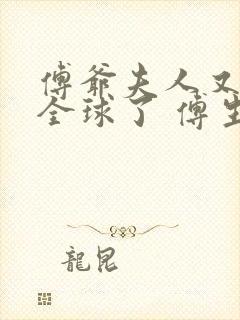 傅爺夫人又
全球了 傅生
龍昆